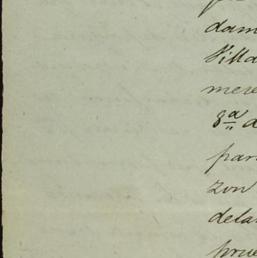 dam
Villa
mere
8ª d
par
zon
dela
prue